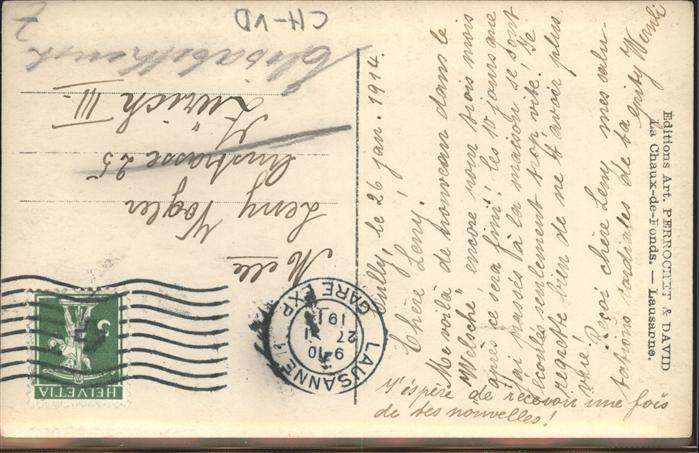 Pully, le 26 jan. 1914.
Chère Leny!
Me voilà de nouveau dans le
"Welsche" encore pour trois mois
après ce sera fini! Les 10 jours que
j'ai passés à la maison se sont
écoulés seulement trop vite! Je
regrette bien de ne t'avoir plus
vue!
Reçoi chère Leny mes salu-
tations cordiales de ta
J'espère de recevoir une fois
de tes nouvelles!
Editions Art. PERROCHET & DAVID
La Chaux-de-Fonds. — Lausanne.
Melle
Leny Vogler
25
Zürich III
CH-VD
HELVETIA
LAUSANNE 1
GARE EXP.
27